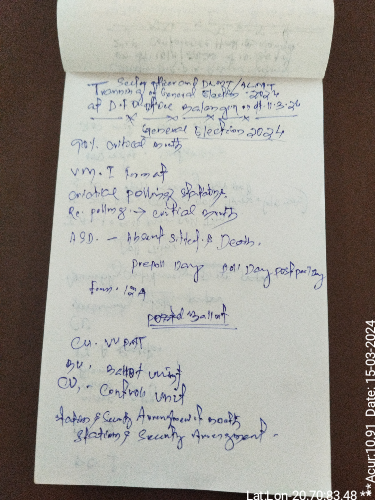 Sector officer and DLMT/ALMT
Training of General Election 2024
at D.I.O office Balangir on dt 11-3-24
General Election 2024
90% critical booth
VM. I format
critical polling station.
Re. polling → critical booth
ASD. - Absent Sifted & Death.
prepoll Day poll Day post poll Day
form. 12A
postal Ballot
CU. VVPATT
BU. Ballot unit
CU. - Controll Unit
Station & Security Arrangment of booth
Station & Security Arrangment.
Lat Lon 20.70,83.48 ** Acur:10.91 Date: 15-03-2024